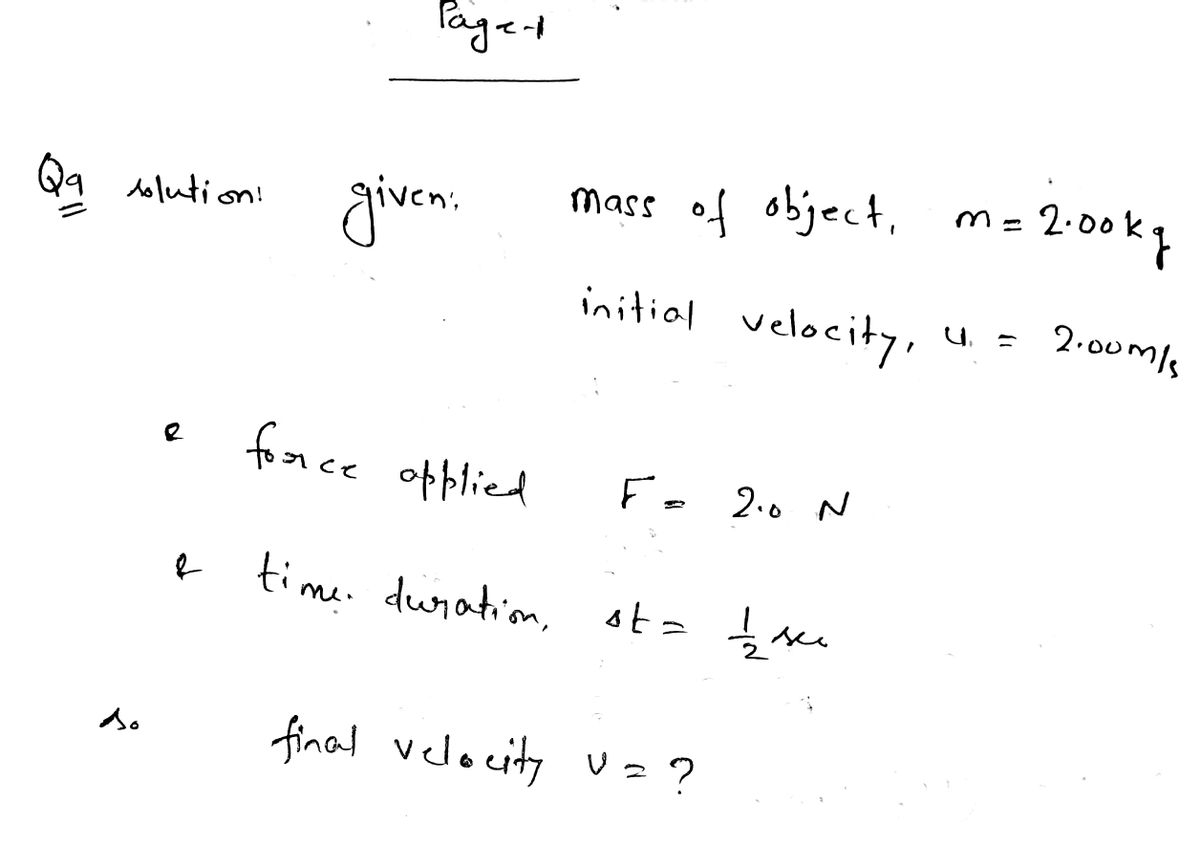 Page-1
Q9 solution: given: mass of object, m = 2.00 kg
initial velocity, u = 2.00 m/s
& force applied F = 2.0 N
& time duration, Δt = 1/2 sec
so final velocity v = ?